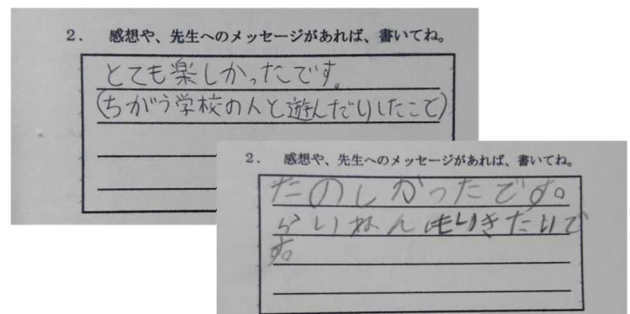 2. 感想や、先生へのメッセージがあれば、書いてね。
とても楽しかったです。
(ちがう学校の人と遊んだりしたこと)
2. 感想や、先生へのメッセージがあれば、書いてね。
たのしかったです。
らいねんもいきたいで
す。